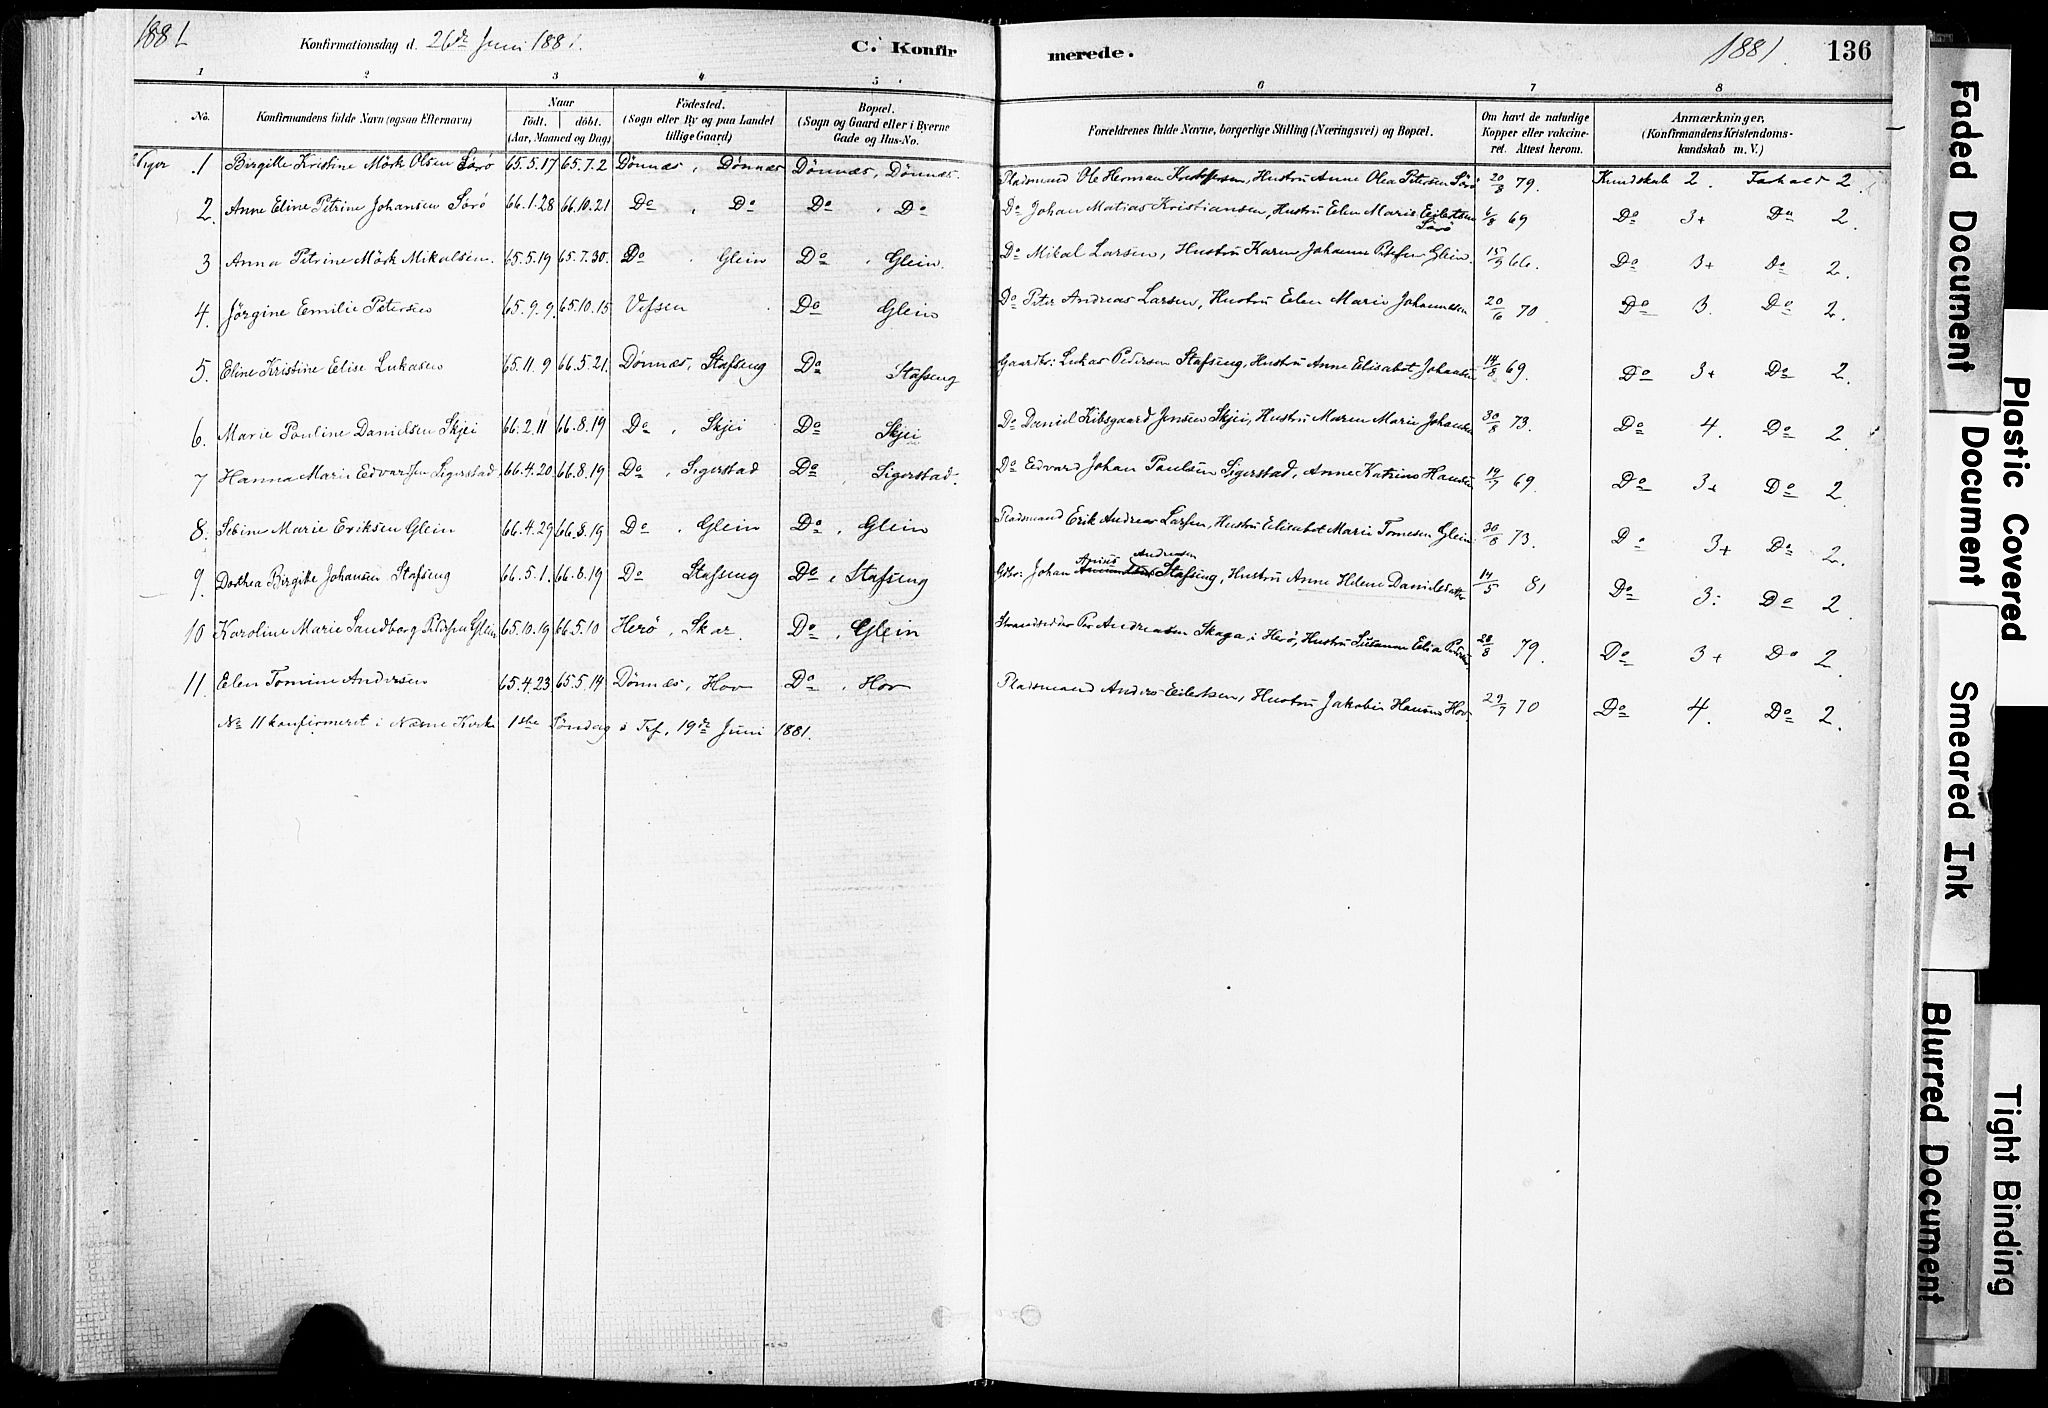 1881 Konfirmationsdag d. 26de Juni 1881. C. Konfir merede. 1881. 136
1 2 3 4 5 6 7 8
No. Konfirmandens fulde Navn (ogsaa Efternavn) Naar Födt. döbt. (Aar, Maaned og Dag) Födested. (Sogn eller By og paa Landet tillige Gaard) Bopæl. (Sogn og Gaard eller i Byerne Gade og Hus-No. Forældrenes fulde Navne, borgerlige Stilling (Næringsvei) og Bopæl. Om havt de naturlige Kopper eller vakcineret. Attest herom. Anmærkninger, (Konfirmandens Kristendomskundskab m. V.)
Piger 1 Birgitte Kristine Mörk Olsen Sörö 65.5.17 65.7.2 Dönnæs, Dönnæs Dönnæs, Dönnæs. Pladsmand Ole Herman Kristoffersen, Hustru Anne Olea Petersen Sörö 20/8 79. Kundskab 2. Forhold 2.
2. Anne Eline Petrine Johansen Sörö 66.1.28 66.10.21 Do , Do Do , Do Do Johan Matias Kristiansen, Hustru Elen Marie Eilertsen Sörö 6/8 69 Do 3+ Do 2.
3 Anna Petrine Mörk Mikalsen. 65.5.19 65.7.30. Do , Glein Do , Glein. Do Mikal Larsen, Hustru Karen Johanne Petersen Glein. 15/9 66. Do 3+ Do 2.
4. Jörgine Emilie Petersen 65.9.9. 65.10.15 Vefsen Do Glein Do Peter Andreas Larsen, Hustru Elen Marie Johannesen 20/6 70. Do 3. Do 2.
5. Eline Kristine Elise Lukasen 65.11.9 66.5.21. Dönnæs, Stafseng Do Stafseng Gaardbr: Lukas Pedersen Stafseng, Hustru Anne Elisabet Johansen 14/8 69. Do 3+ Do 2.
6. Marie Pauline Danielsen Skjei 66.2.11 66.8.19 Do , Skjei Do Skjei Do Daniel Kibsgaard Jensen Skjei, Hustru Maren Marie Johansen 30/8 73. Do 4. Do 2.
7 Hanna Marie Edvardsen Sigerstad 66.4.20 66.8.19 Do , Sigerstad Do , Sigerstad. Do Edvard Johan Paulsen Sigerstad, Anne Katrine Hansen 19/7 69. Do 3+ Do 2.
8. Sibine Marie Eriksen Glein 66.4.29 66.8.19 Do , Glein Do , Glein Pladsmand Erik Andreas Larsen, Hustru Elisabet Marie Tomesen Glein 30/8 73. Do 3+ Do 2.
9. Dorthea Birgitte Johansen Stafseng 66.5.1. 66.8.19 Do Stafseng Do , Stafseng Gdbr: Johan Andreasen Stafseng, Hustru Anne Helene Danielsdatter 14/5 81 Do 3: Do 2
10 Karoline Marie Sandborg Pedersen Glein 65.10.19 66.5.10 Herö , Skar. Do , Glein Strandsidder Per Andreasen Skaga i Herö, Hustru Susanna Elia Pedersen 28/8 79. Do 3+ Do 2.
11. Elen Tomine Andersen 65.4.23 65.5.14 Dönnæs, Hov Do , Hov Pladsmand Anders Eilertsen, Hustru Jakobin Hansen Hov 29/7 70 Do 4. Do 2.
No 11 konfirmeret i Næsne Kirke 1ste Söndag e Trf. 19de Juni 1881.
Faded Document
Plastic Covered Document
Smeared Ink
Tight Binding
Blurred Document